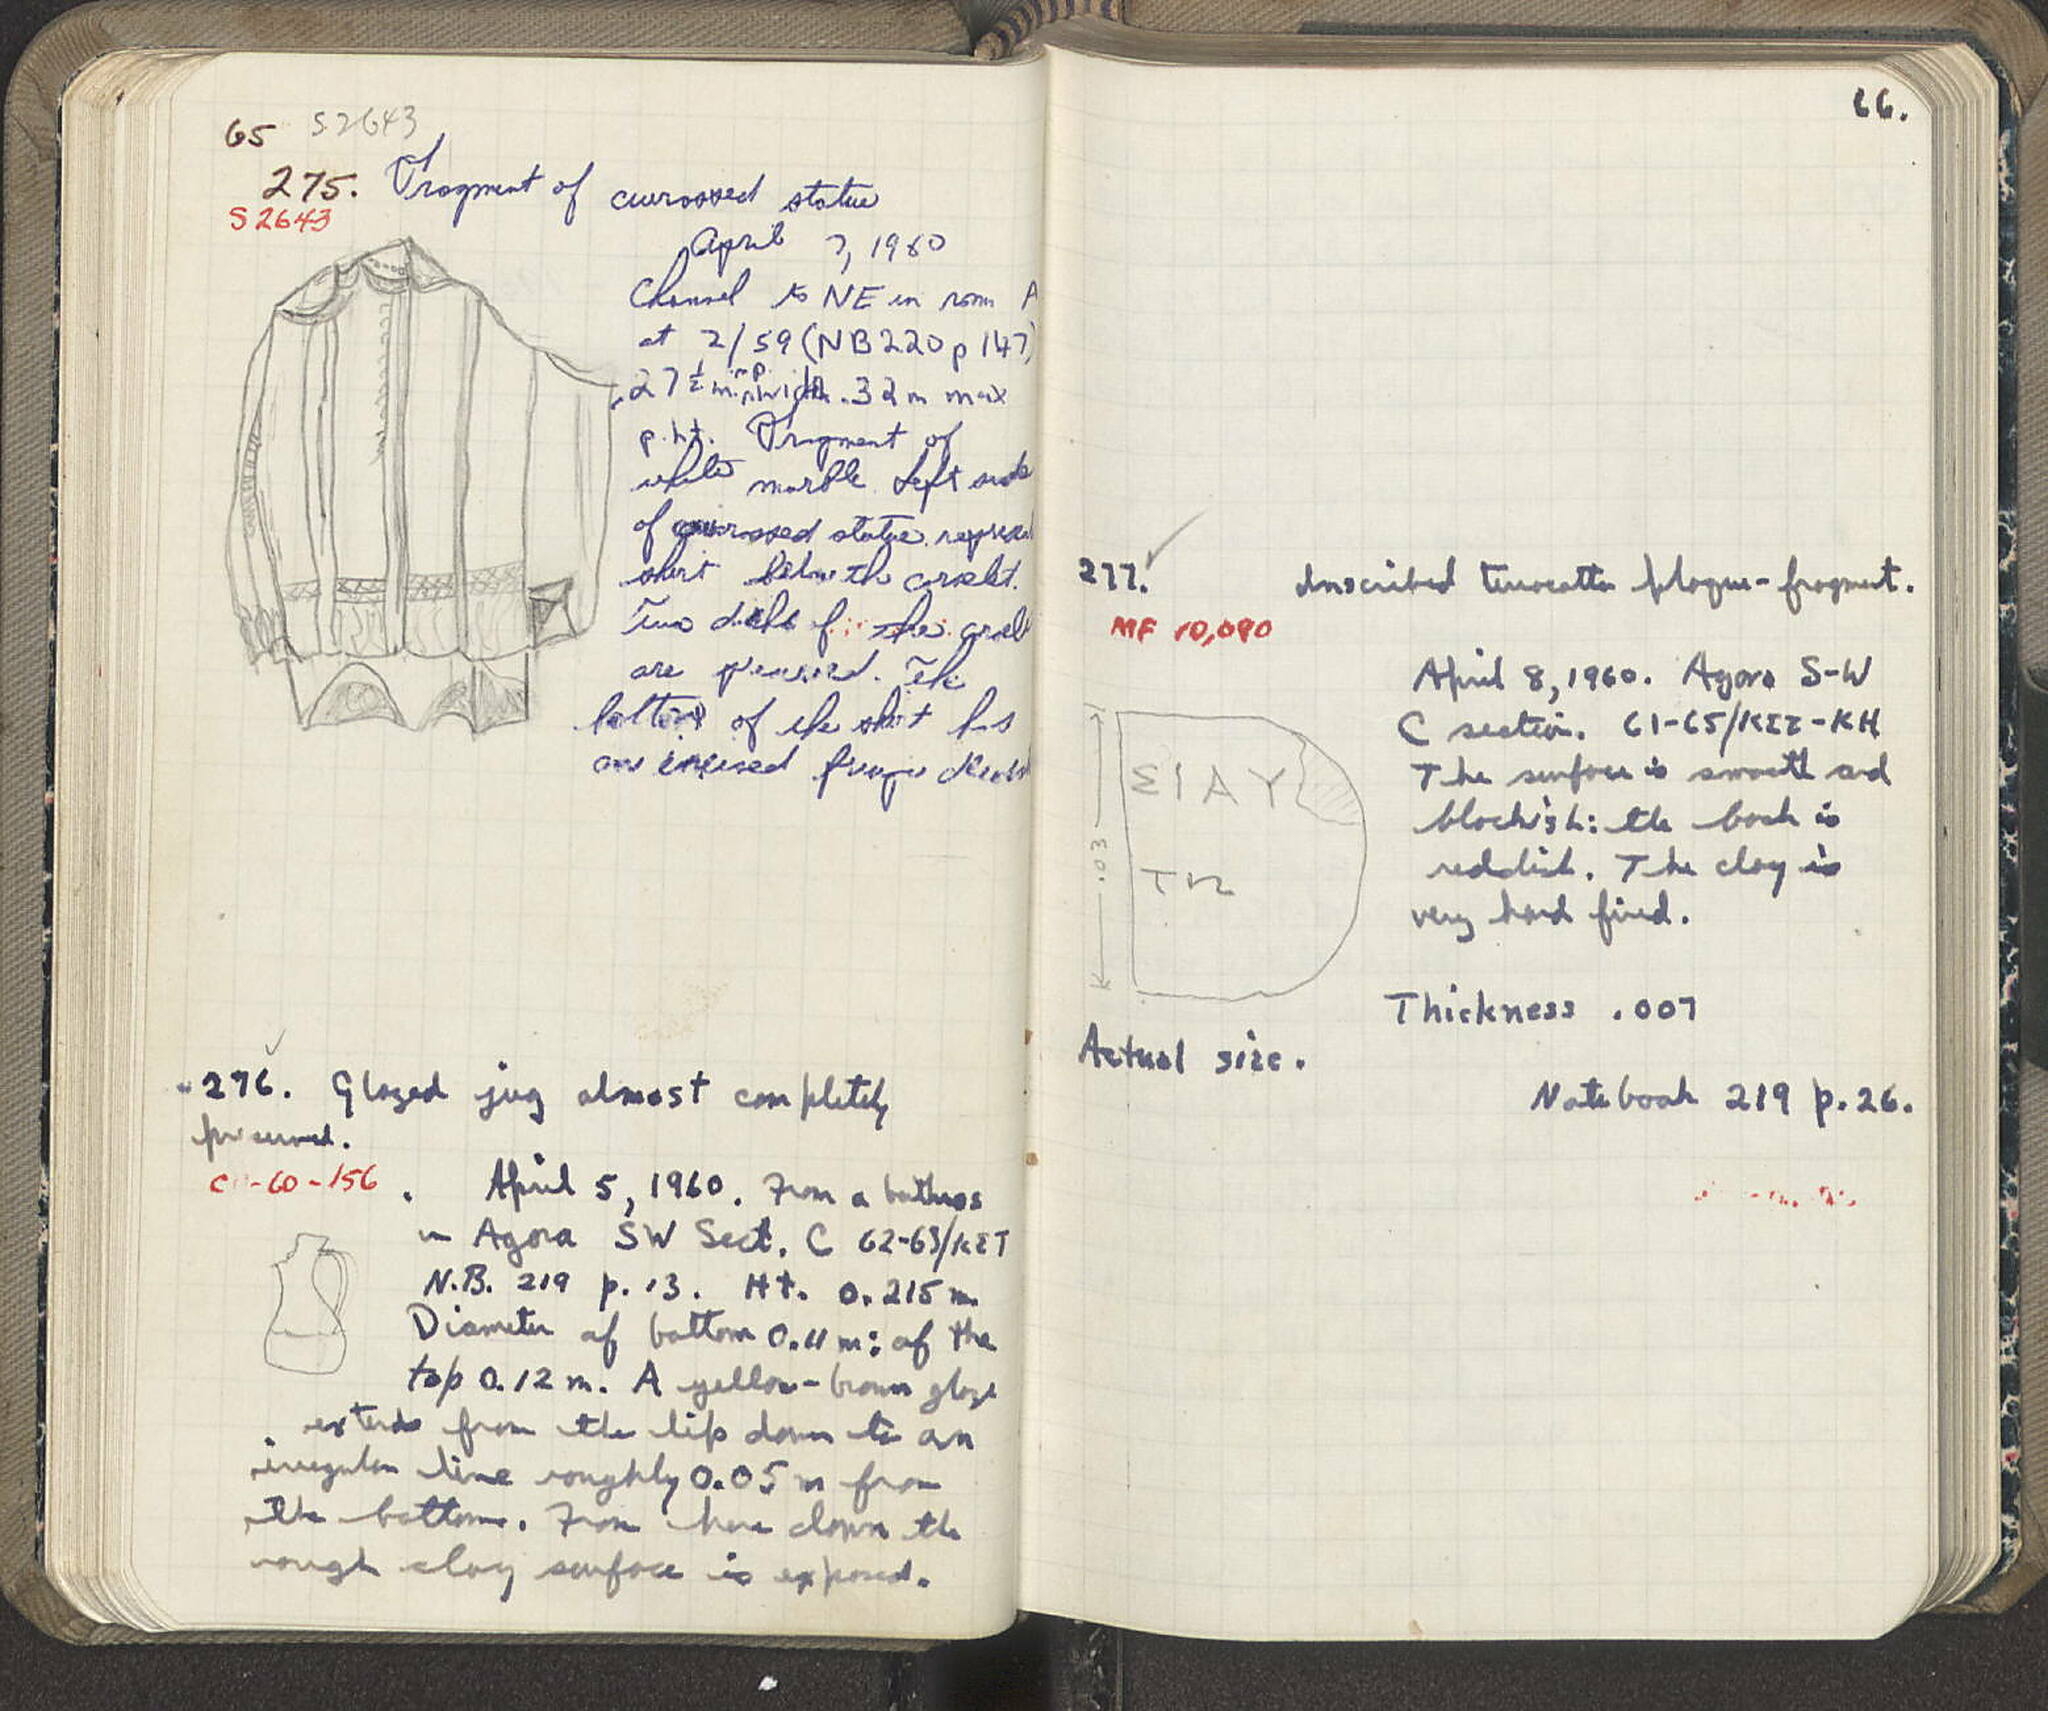 65 S2643
275. Fragment of cuirassed statue
S2643
April 7, 1960
Channel to NE in room A
at 2/59 (NB 220 p 147)
.27½ m. m.p. width .32 m max
p.ht. Fragment of
white marble left side
of cuirassed statue.
shirt below the corslet.
Two of the
are preserved. The
bottom of the shirt has
an incised fringe
276. Glazed jug almost completely
preserved.
C-60-156
April 5, 1960. From a bothros
in Agora SW Sect. C 62-63/ΚΣΤ
N.B. 219 p. 13. Ht. 0.215 m.
Diameter of bottom 0.11 m: of the
top 0.12 m. A yellow-brown glaze
extends from the lip down to an
irregular line roughly 0.05 m from
the bottom. From here down the
rough clay surface is exposed.
66.
277. Inscribed terracotta plaque-fragment.
MF 10,090
April 8, 1960. Agora S-W
C section. 61-65/ΚΣΣ-ΚΗ
The surface is smooth and
blackish: the back is
reddish. The clay is
very hard fired.
ΣΙΑΥ
ΤΩ
.03
Thickness .007
Actual size.
Notebook 219 p.26.